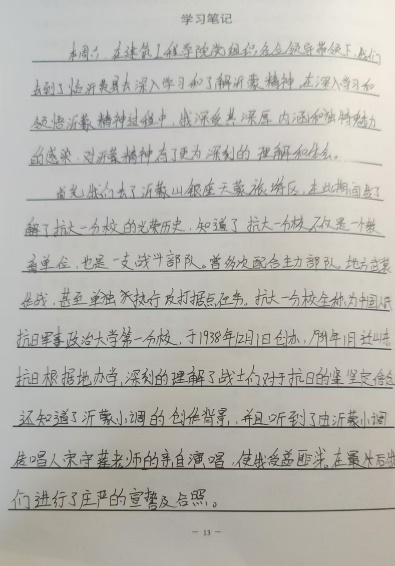 学习笔记
本周六，在建筑工程学院党组织各位领导带领下，我们
去到了临沂费县去深入学习和了解沂蒙精神，在深入学习和
领悟沂蒙精神过程中，我深受其深厚内涵和独特魅力
的感染，对沂蒙精神有了更为深刻的理解和体会。
首先，我们去了沂蒙山银座天蒙旅游区，在此期间
解了抗大一分校的光荣历史，知道了抗大一分校不仅是一个教
单位，也是一支战斗部队。曾多次配合主力部队，地方武装
作战，甚至单独执行反打据点任务。抗大一分校全称为中国人民
抗日军事政治大学第一分校，于1938年12月1日创办，1939年1月迁山东
抗日根据地办学，深刻的理解了战士们对于抗日的坚定信念
还知道了沂蒙小调的创作背景，并且听到了由沂蒙小调
传唱人宋守莲老师的亲自演唱，使我受益匪浅。在最后我
们进行了庄严的宣誓及合照。
- 13 -